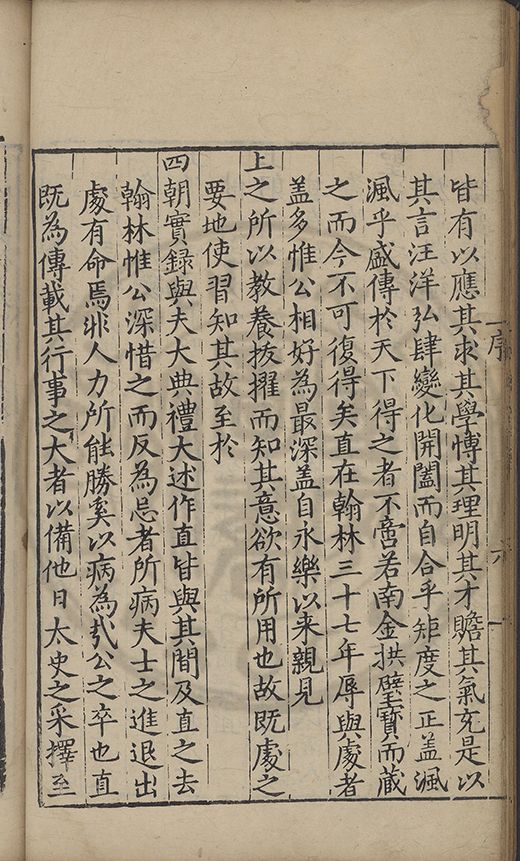 皆有以應其求其學愽其理明其才贍其氣充是以
其言汪洋弘肆變化開闔而自合乎矩度之正盖渢
渢乎盛傳於天下得之者不啻若南金拱璧寳而蔵
之而今不可復得矣直在翰林三十七年辱與處者
盖多惟公相好為最深盖自永樂以来親見
上之所以教養拔擢而知其意欲有所用也故既處之
要地使習知其故至於
四朝實録與夫大典禮大述作直皆與其間及直之去
翰林惟公深惜之而反為忌者所病夫士之進退出
處有命焉非人力所能勝奚以病為哉公之卒也直
既為傳載其行事之大者以備他日太史之采擇至
序
六